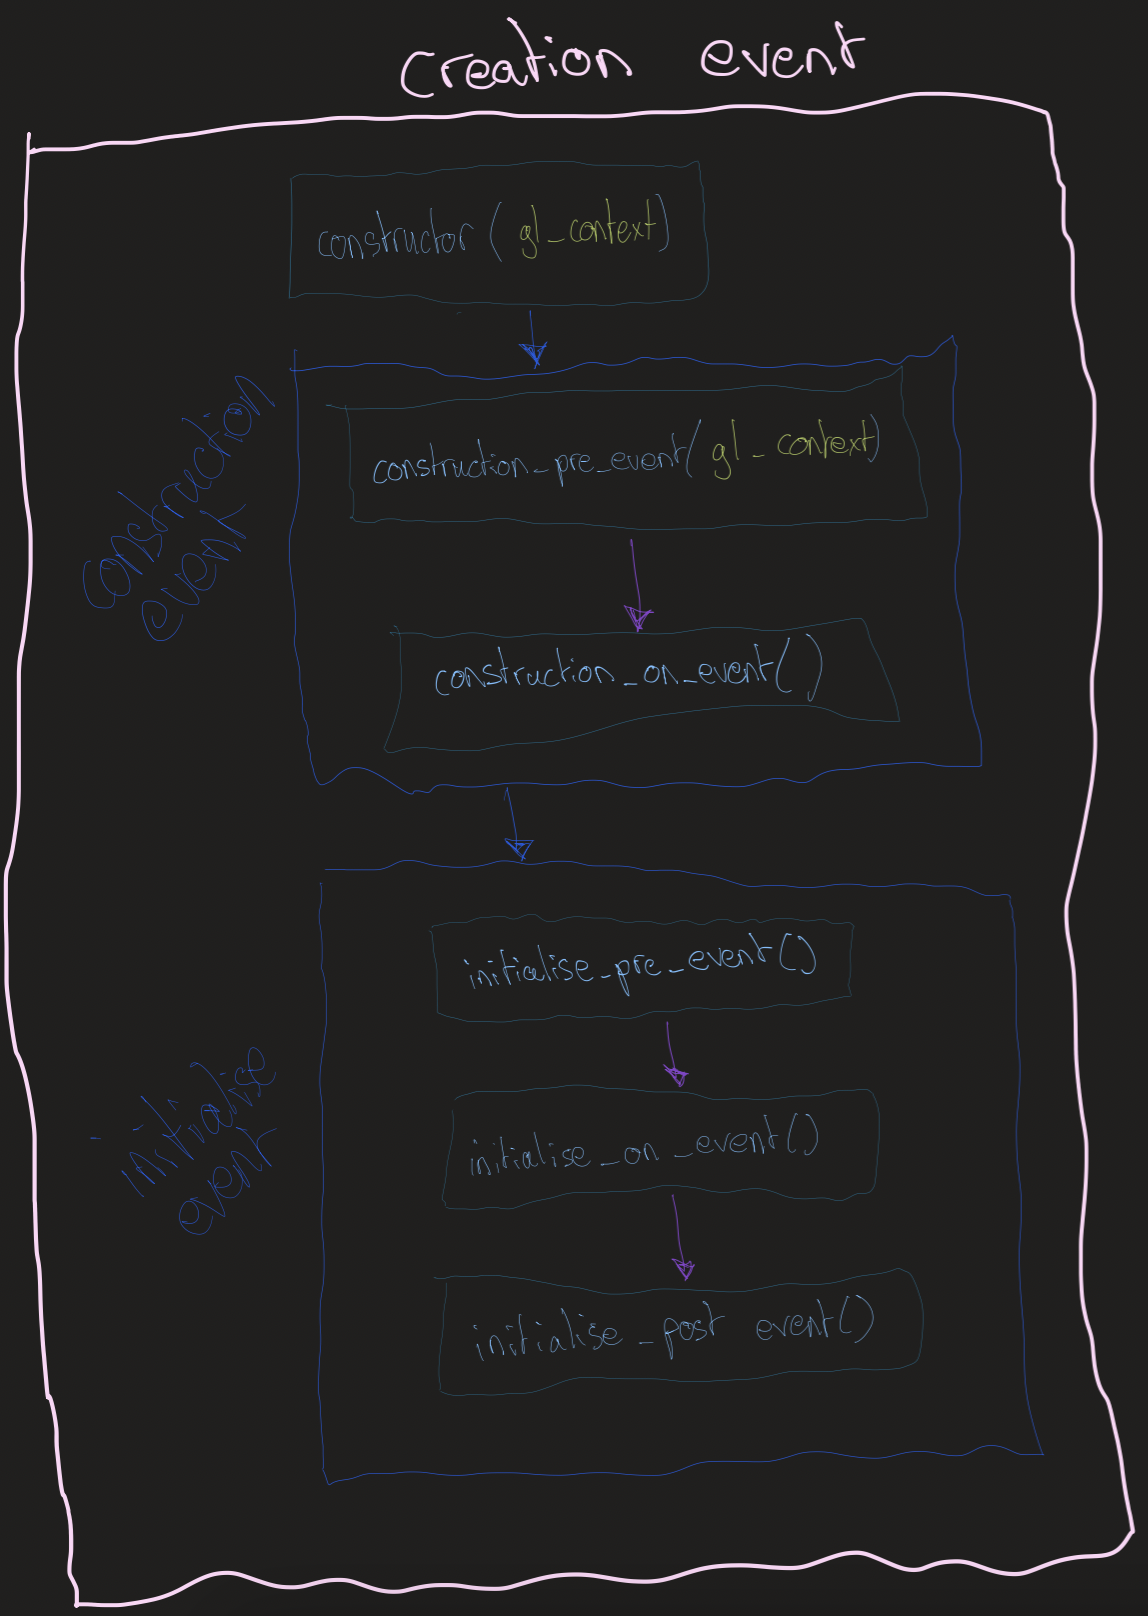 creation event
constructor ( gl_context)
construction
event
construction_pre_event( gl_context)
construction_on_event()
initialise_pre_event()
initialise
event
initialise_on_event()
initialise_post event()